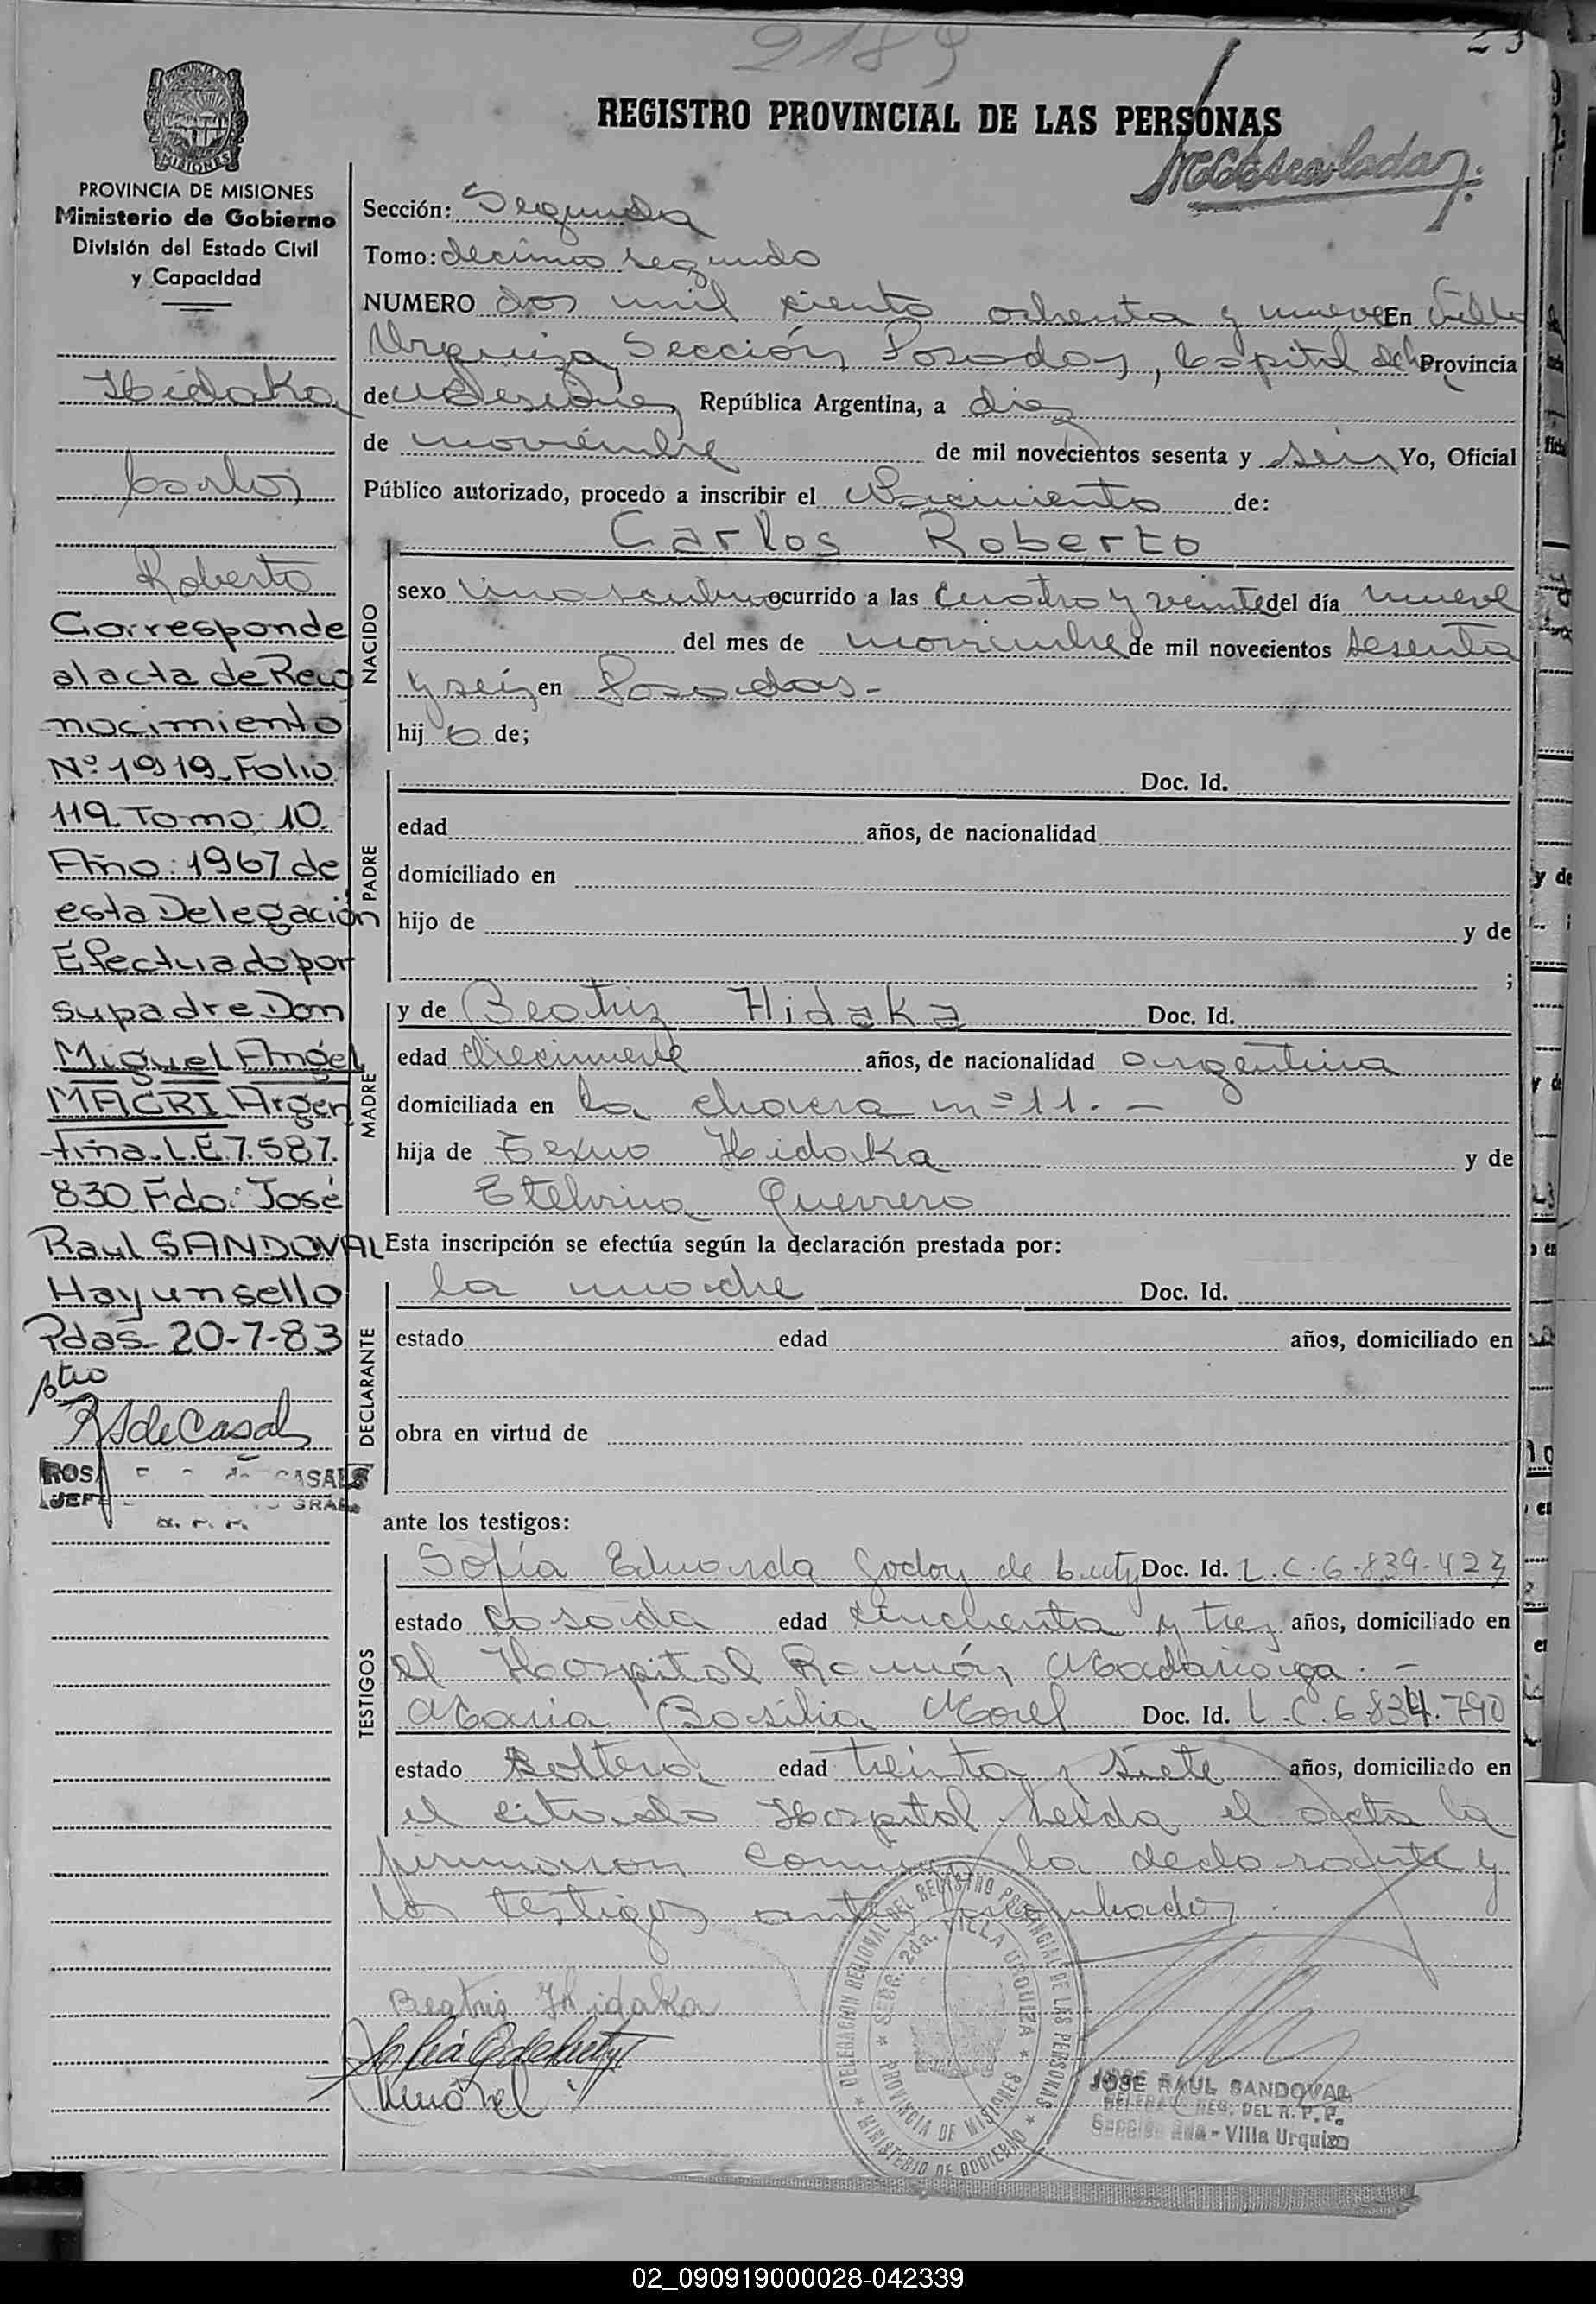 2189
REGISTRO PROVINCIAL DE LAS PERSONAS
MISIONES
PROVINCIA DE MISIONES
Ministerio de Gobierno
División del Estado Civil
y Capacidad
Hidaka
Carlos
Roberto
Corresponde
al acta de Reco
nocimiento
Nº 1919 Folio
119 Tomo: 10
Año: 1967 de
esta Delegación
Efectuado por
su padre Don
Miguel Angel
MAGRI Argen
tina. L.E. 7.587.
830 Fdo: José
Raul SANDOVAL
Hay un sello
Pdas. 20-7-83
RSdeCasals
CASALS
JEFE GRAL.
Sección: Segunda
Tomo: decimo segundo
NUMERO dos mil ciento ochenta y nueve En Villa
Urquiza Sección Posadas, Capital de la Provincia
de Misiones República Argentina, a diez
de noviembre de mil novecientos sesenta y seis Yo, Oficial
Público autorizado, procedo a inscribir el Nacimiento de:
Carlos Roberto
NACIDO
sexo masculino ocurrido a las cuatro y veinte del día nueve
del mes de noviembre de mil novecientos sesenta
y seis en Posadas.-
hij o de;
PADRE
Doc. Id.
edad años, de nacionalidad
domiciliado en
hijo de y de
;
MADRE
y de Beatriz Hidaka Doc. Id.
edad diecinueve años, de nacionalidad argentina
domiciliada en la chacra nº 11. -
hija de Hidaka y de
Etelvina Guerrero
Esta inscripción se efectúa según la declaración prestada por:
DECLARANTE
la madre Doc. Id.
estado edad años, domiciliado en
obra en virtud de
ante los testigos:
TESTIGOS
Sofía Eduarda Godoy de Doc. Id. L.C.6.839.423
estado casada edad cincuenta y tres años, domiciliado en
el Hospital Ramón Madariaga. -
Maria Basilia Morel Doc. Id. L.C.6.834.790
estado soltera edad treinta y siete años, domiciliado en
el citado Hospital. Leida el acta la
firmaron conmigo la declarante y
los testigos antes nombrados.
Beatriz Hidaka
DELEGACION REGIONAL DEL REGISTRO PROVINCIAL DE LAS PERSONAS
MINISTERIO DE GOBIERNO
SECC. 2da. VILLA URQUIZA
PROVINCIA DE MISIONES
JOSE RAUL SANDOVAL
DELEGADO REG. DEL R. P. P.
Sección 2da - Villa Urquiza
02_090919000028-042339